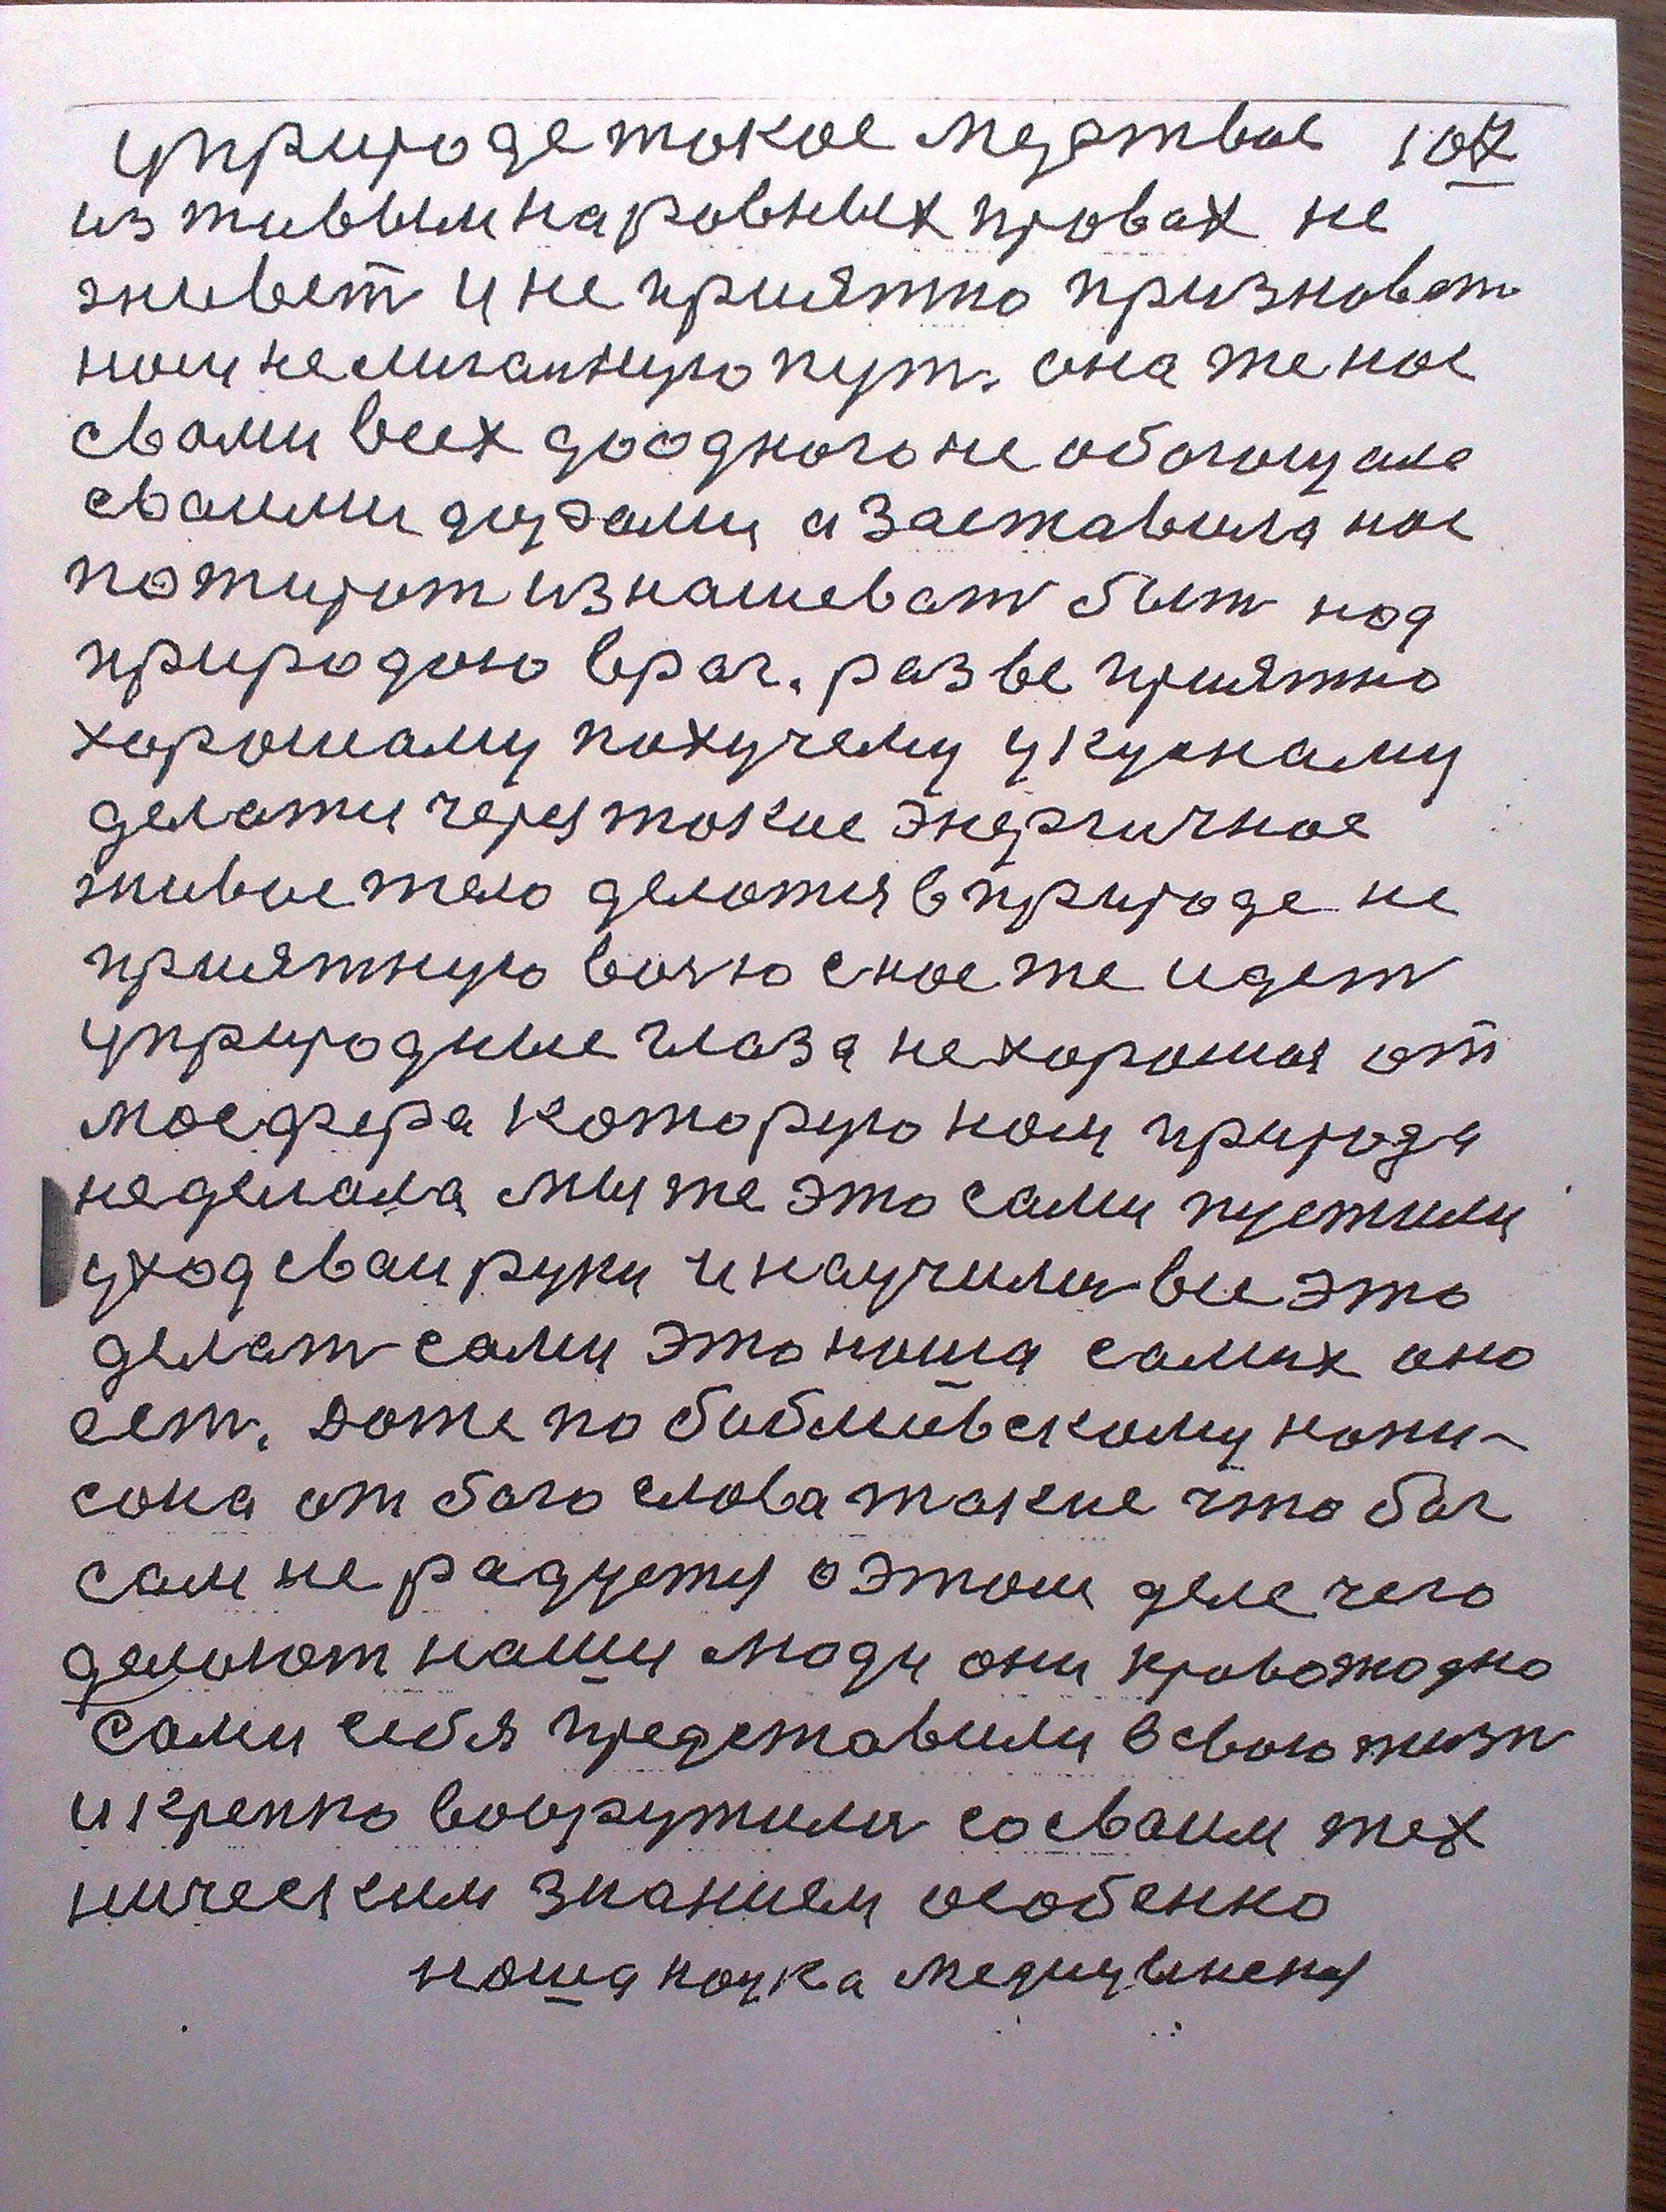 уприроде токое мертвое 107
из живым на ровных провах не
живет и не приятно призноват
ном немиганную пут. она же нос
свами всех доодного не обогощала
сваими дарами а заставила нос
пожират изнашеват быт над
природою враг. разве приятно
харошаму пахучему укуснаму
делатця через токие энергичное
живое тело делотся в природе не
приятную воню с нос же идет
уприродные глаза нехорошая от
мосфера которую ном природа
неделала мы же это сами пустили
уход сваи руки инаучилис все это
делат сами это ноша самих оно
ест. Доже по библиевскому напи-
сона от бога слова такие что бог
сам не радуется о этом деле чего
делоют наши люди они кровожодно
сами себя представили в свою жизн
и крепко вооружилис со сваим тех
ническим знанием особенно
ноша наука медицинская